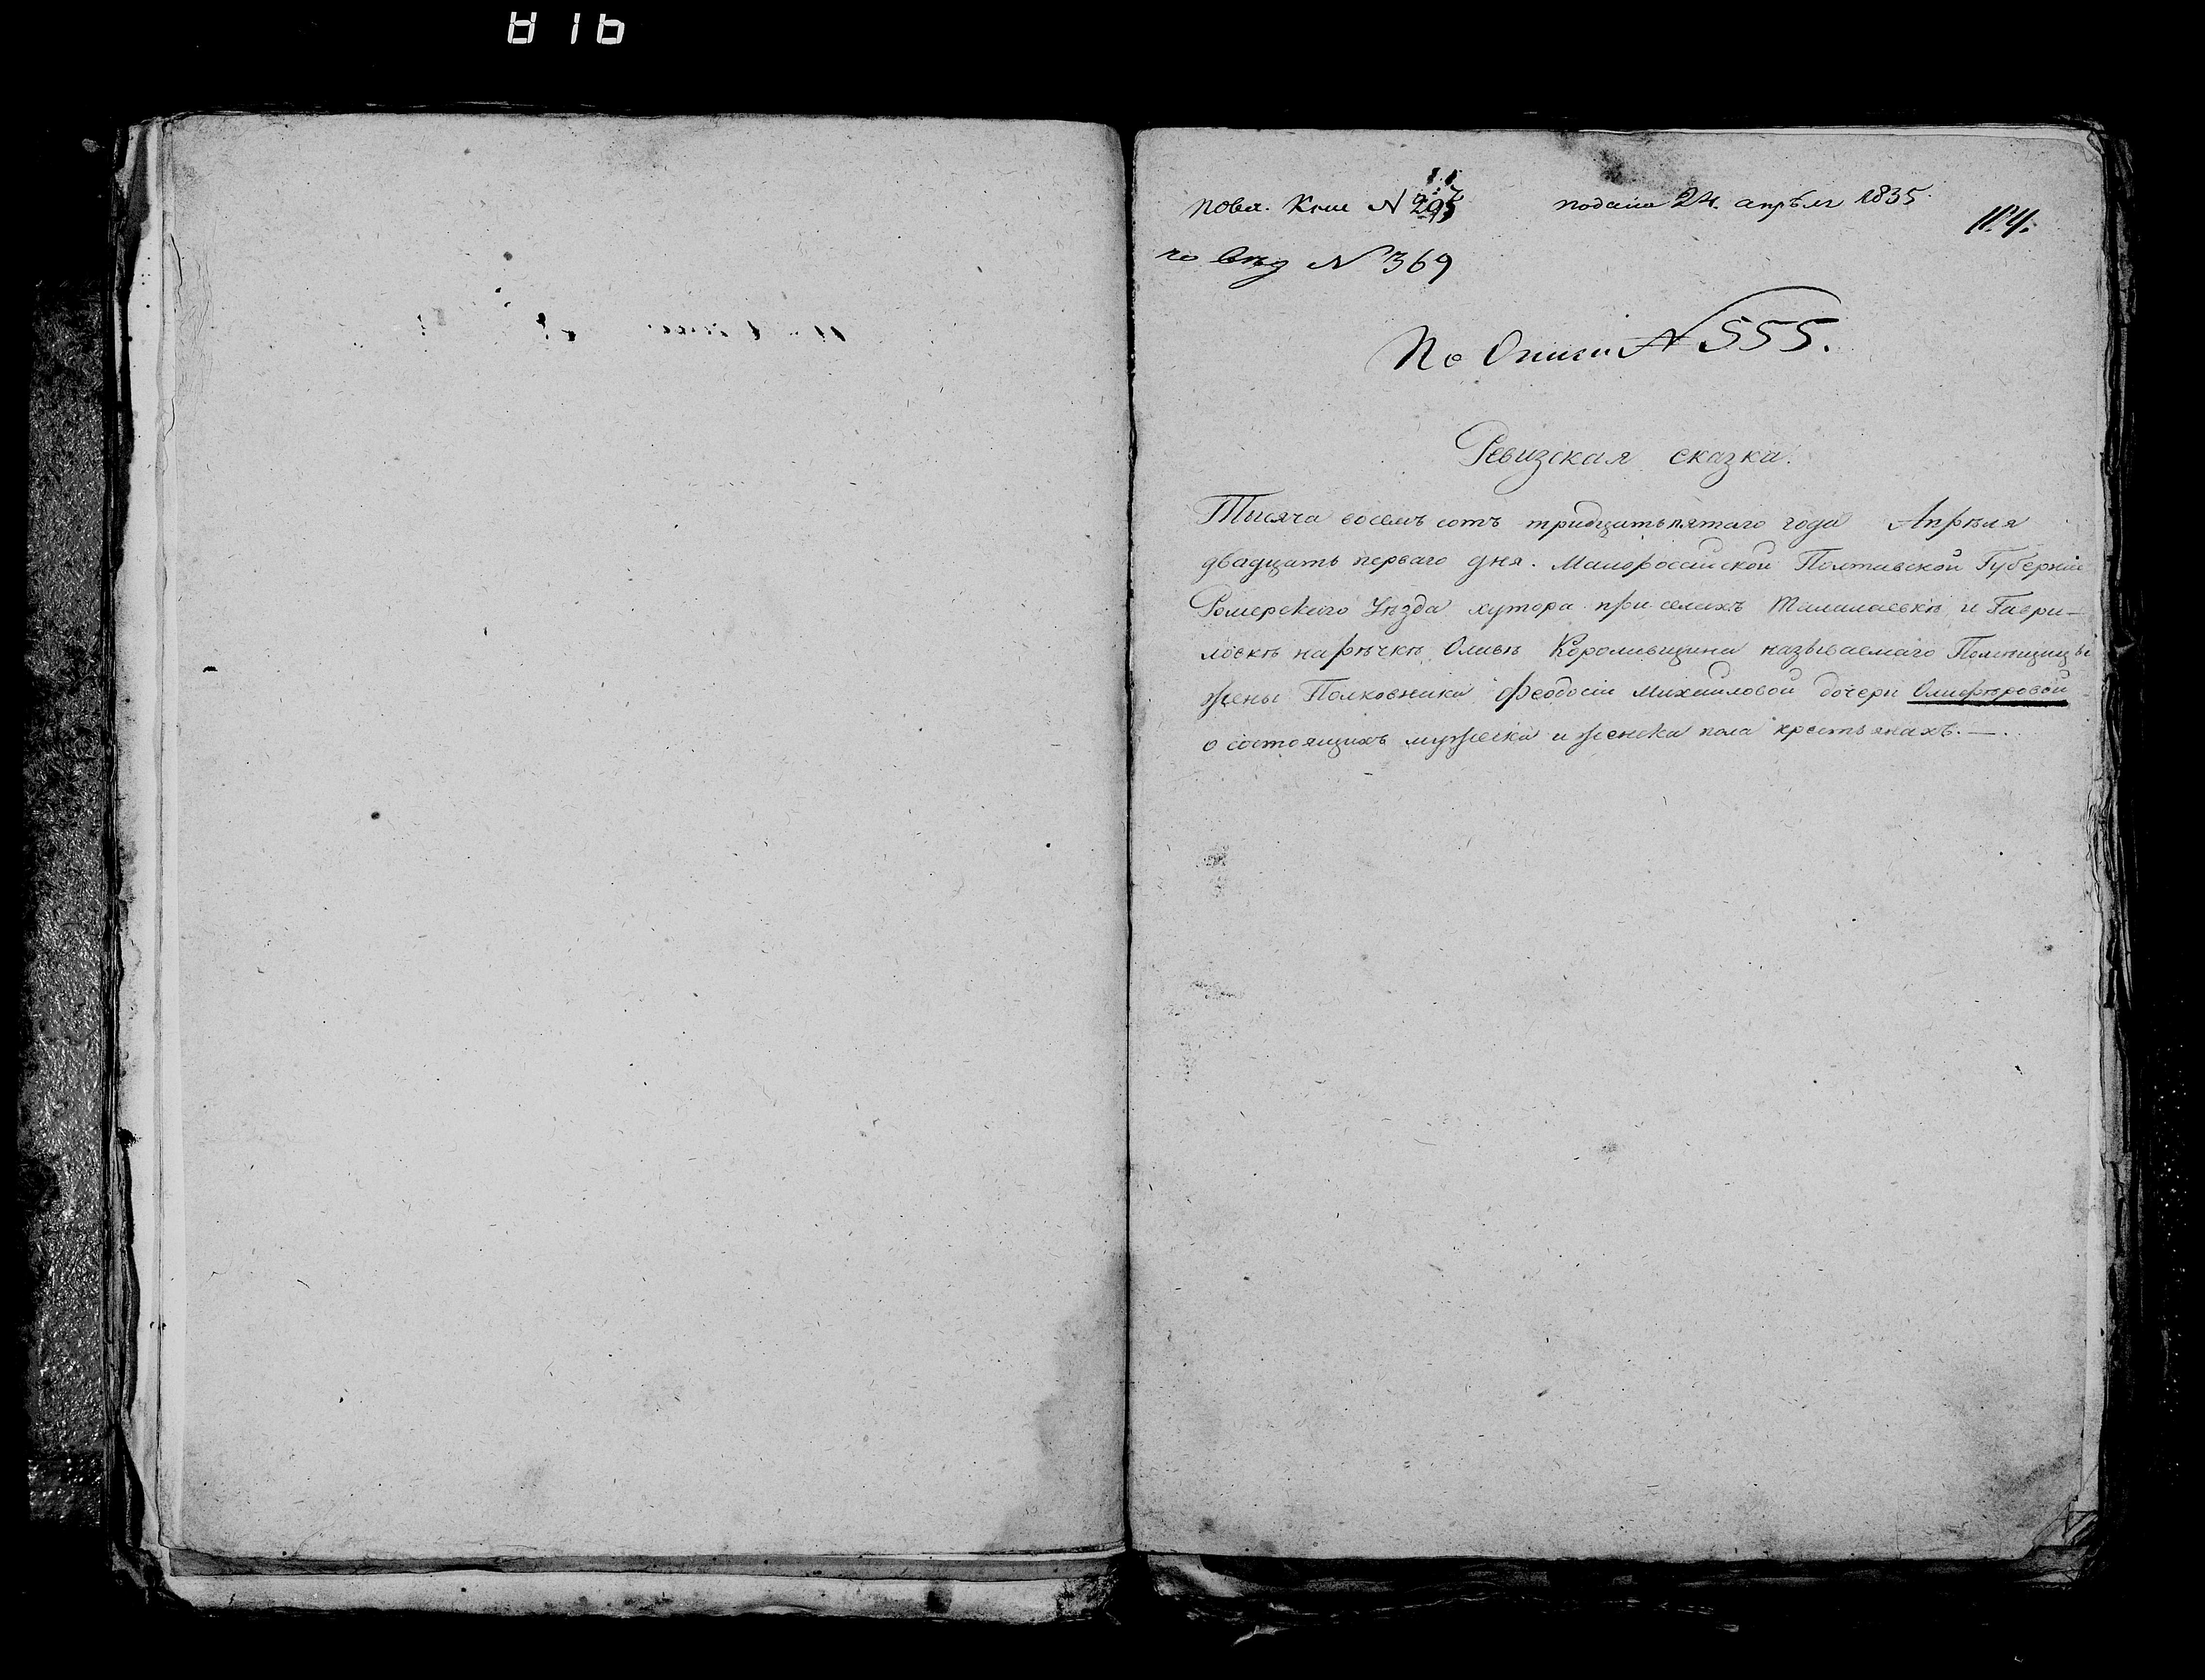 816
подана 24. апрѣля 1835
114.
по вѣд N 369
По Описи N 555.
Ревизская сказка.
Тысяча восемъ сотъ тридцать пятаго года Апрѣля
двадцать перваго дня. Малоросийской Полтавской Губерніи
Роменского Уѣзда хутора при селахъ Талалаевкѣ и Гаври-
ловкѣ на рѣчкѣ Олавѣ называемаго Помѣщицы
жены Полковника Феодосіи Михайловой дочери
о состоящихъ мужеска и женска пола крестьянахъ. —.